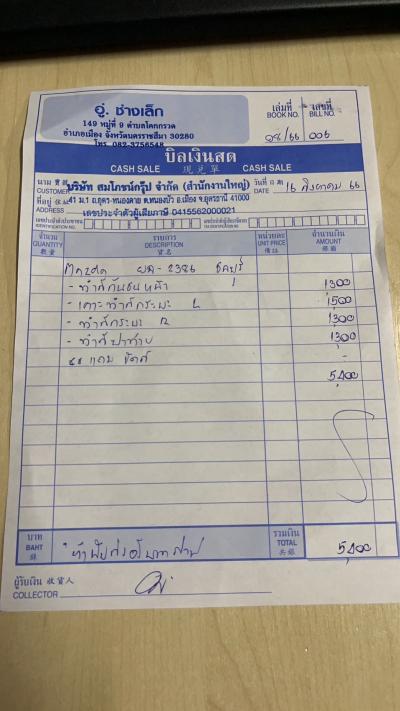 อู่. ช่างเล็ก
149 หมู่ที่ 9 ตำบลโคกกรวด
อำเภอเมือง จังหวัดนครราชสีมา 30280
โทร. 082-3756548
เล่มที่ เลขที่
BOOK NO. BILL NO.
08/66 006
บิลเงินสด
CASH SALE 現兌單 CASH SALE
นาม
CUSTOMER บริษัท สมโภชน์กรุ๊ป จำกัด (สำนักงานใหญ่)
วันที่
DATE 16 สิงหาคม 66
ที่อยู่ 41 ม.1 ถ.อุดร-หนองคาย ต.หนองบัว อ.เมือง จ.อุดรธานี 41000
ADDRESS เลขประจำตัวผู้เสียภาษี 0415562000021
จำนวน รายการ หน่วยละ จำนวนเงิน
QUANTITY DESCRIPTION UNIT PRICE AMOUNT
數量 貨名 價錢 銀額
Mazda ผล-2386 ชลบุรี
- ทำสีกันชนหน้า 1300
- เคาะทำสีกระบะ L 1,500
- ทำสีกระบะ R 1,300
- ทำสีฝาท้าย 1,300
แถม ขัดสี -
5,400
บาท
BAHT
銖
ห้าพันสี่ร้อยบาทถ้วน
รวมเงิน
TOTAL
共銀
5,400
ผู้รับเงิน 收貨人
COLLECTOR